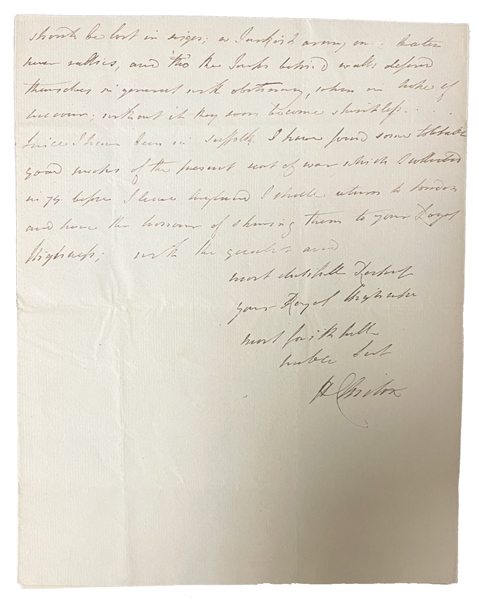 should be lost in sieges; a Turkish army once beaten
never rallies, and tho the Turks behind walls defend
themselves in general with obstinacy, when in hope of
succour; without it they soon become spiritless.
Since I have been in Suffolk I have found some tolerable
good of the present seat of war which I collected
in 79 before I leave England I shall return to London
and have the honour of shewing them to your Royal
Highness; with the greatest and
most dutyfull
your Royal Highness
most faithfull
humble Sert
H